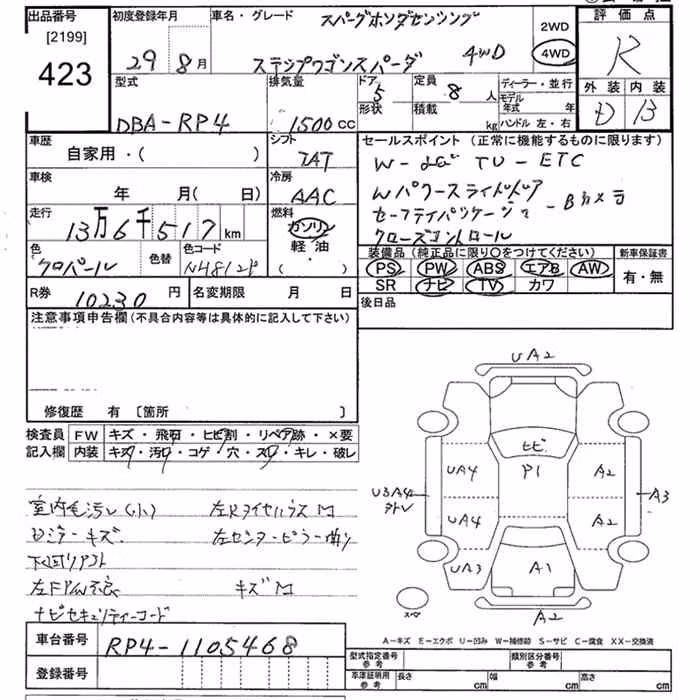 出品番号
[2199]
423
初度登録年月
29年 8月
車名・グレード
スパーダホンダセンシング
ステップワゴンスパーダ 4WD
2WD
4WD
評価点
R
外装 内装
D B
型式
DBA-RP4
排気量
1500cc
ドア 5
形状
定員 8人
積載 kg
ディーラー・並行
モデル年式 年
ハンドル 左・右
車歴
自家用・( )
シフト
車検
年 月( 日)
冷房
AAC
走行
13万6千517km
燃料
ガソリン
軽油・
( )
色
クロパール
色替
色コード
R券
10230円
名変期限 月 日
セールスポイント (正常に機能するものに限ります)
TV-ETC
Wパワースライドドア
-Bカメラ
クローズコントロール
装備品 (純正品に限り〇をつけてください)
PS PW ABS エアB AW
SR ナビ TV カワ
新車保証書
有・無
後日品
注意事項申告欄 (不具合内容等は具体的に記入して下さい)
修復歴 有 〔箇所 〕
検査員記入欄
FW キズ・飛石・ヒビ割・リペア跡・×要
内装 キズ・汚れ・コゲ・穴・スレ・キレ・破レ
室内毛汚レ(小) 左RタイヤハウスM
Dミラーキズ 左センターピラー曲り
キズM
ナビセキュリティーコード
UA2
ヒビ
P1
UA4
A2
U3A4
A3
UA4
A2
UA3
A1
A2
A-キズ E-エクボ U-凹み W-補修跡 S-サビ C-腐食 XX-交換済
車台番号
RP4-1105468
登録番号
型式指定番号 参考
類別区分番号 参考
車庫証明用 参考
長さ cm
幅 cm
高さ cm